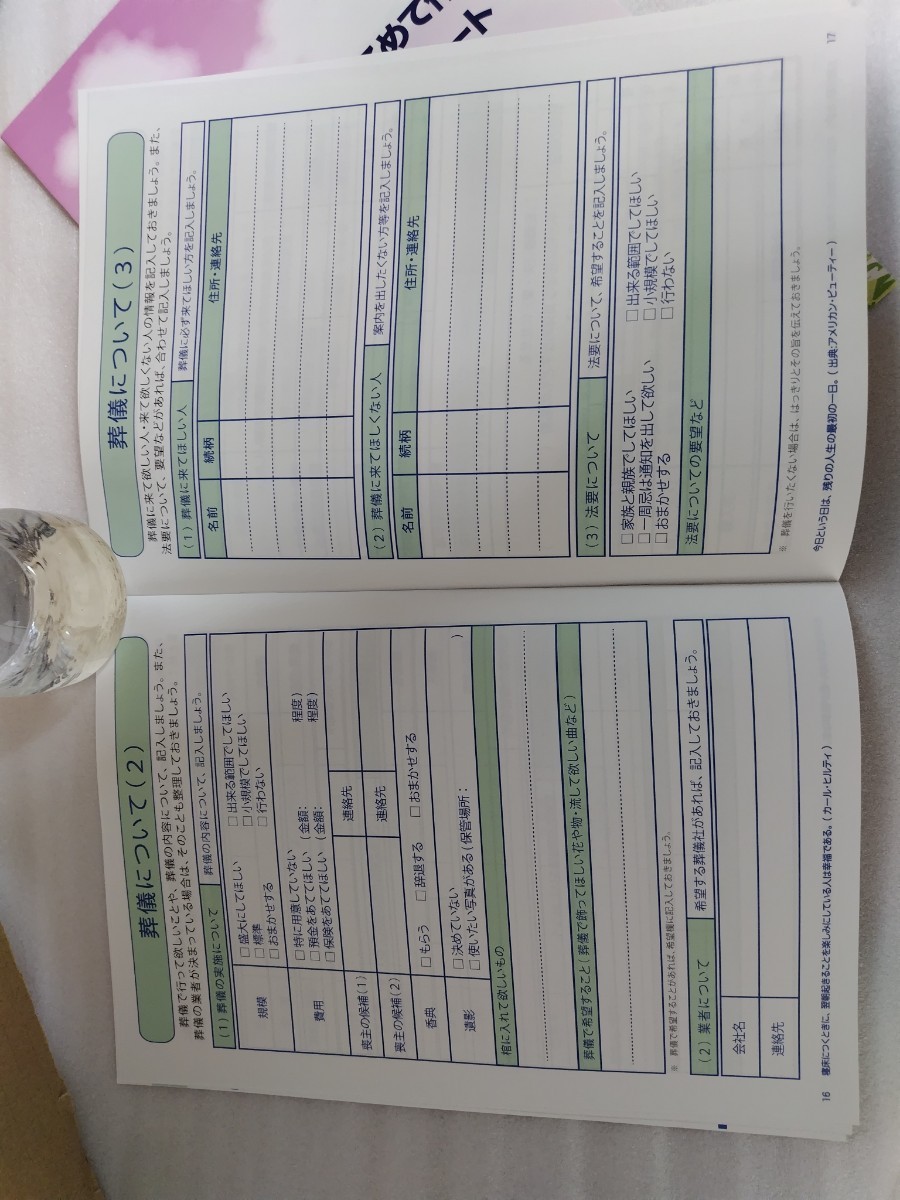 葬儀について(2)
葬儀で行って欲しいことや、葬儀の内容について、記入しましょう。また、
葬儀の業者が決まっている場合は、そのことも整理しておきましょう。
(1)葬儀の実施について 葬儀の内容について、記入しましょう。
規模
□盛大にしてほしい □出来る範囲でしてほしい
□標準 □小規模でしてほしい
□おまかせする □行わない
費用
□特に用意していない
□預金をあててほしい (金額: 程度)
□保険をあててほしい (金額: 程度)
喪主の候補(1) 連絡先
喪主の候補(2) 連絡先
香典 □もらう □辞退する □おまかせする
遺影
□決めていない
□使いたい写真がある(保管場所: )
棺に入れて欲しいもの
葬儀で希望すること(葬儀で飾ってほしい花や物・流して欲しい曲など)
※ 葬儀で希望することがあれば、希望欄に記入しておきましょう。
(2)業者について 希望する葬儀社があれば、記入しておきましょう。
会社名
連絡先
16 寝床につくときに、翌朝起きることを楽しみにしている人は幸福である。(カール・ヒルティ)
葬儀について(3)
葬儀に来て欲しい人・来て欲しくない人の情報を記入しておきましょう。また、
法要について、要望などがあれば、合わせて記入しましょう。
(1)葬儀に来てほしい人 葬儀に必ず来てほしい方を記入しましょう。
名前 続柄 住所・連絡先
(2)葬儀に来てほしくない人 案内を出したくない方等を記入しましょう。
名前 続柄 住所・連絡先
(3)法要について 法要について、希望することを記入しましょう。
□家族と親族でしてほしい □出来る範囲でしてほしい
□一周忌は通知を出して欲しい □小規模でしてほしい
□おまかせする □行わない
法要についての要望など
※ 葬儀を行いたくない場合は、はっきりとその旨を伝えておきましょう。
今日という日は、残りの人生の最初の一日。(出典:アメリカン・ビューティー) 17